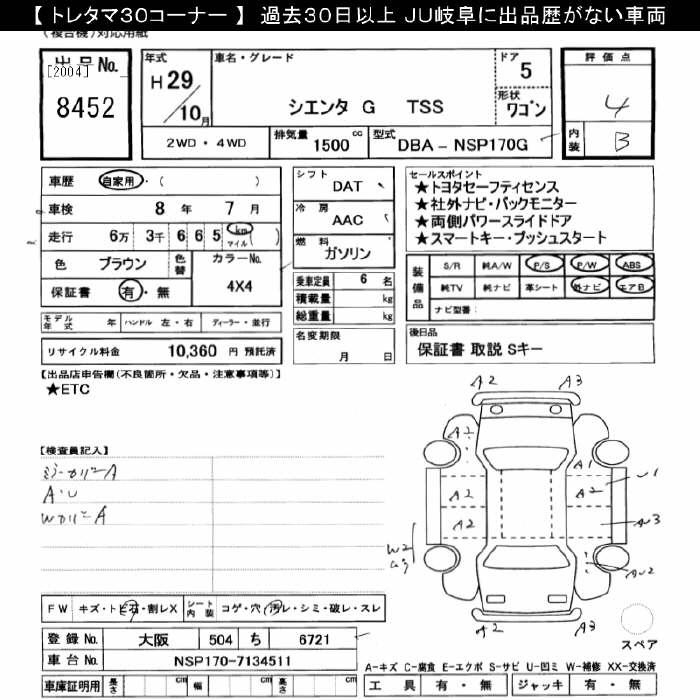 【 トレタマ30コーナー 】 過去30日以上 JU岐阜に出品歴がない車両
(複合機)対応用紙
出品No.
[2004]
8452
年式
H 29
10月
車名・グレード
シエンタ G TSS
ドア
5
形状
ワゴン
評価点
4
内装
B
2WD・4WD
排気量
1500 cc
型式
DBA - NSP170G
車歴 自家用・( )
車検 8 年 7 月
走行 6万 3千 6 6 5 km マイル ( )
色 ブラウン 色替 カラーNo.
4X4
保証書 有・無
シフト
DAT
冷房
AAC
燃料
ガソリン
乗車定員 6 名
積載量 kg
総重量 kg
名変期限
月 日
セールスポイント
★トヨタセーフティセンス
★社外ナビ・バックモニター
★両側パワースライドドア
★スマートキー・プッシュスタート
装備品
S/R 純A/W P/S P/W ABS
純TV 純ナビ 革シート 外ナビ エアB
ナビ型番:
モデル年式 年 ハンドル 左・右 ディーラー・並行
リサイクル料金 10,360 円 預託済
後日品
保証書 取説 Sキー
【出品店申告欄(不良箇所・欠品・注意事項等)】
★ETC
【検査員記入】
A・U
A2 A3
A2 A2
A1 U1
A2 A2
A2 A3
W2
A2
A2 A3
FW キズ・トビ石・割レX シート内装 コゲ・穴・汚レ・シミ・破レ・スレ
登録No. 大阪 504 ち 6721
車台No. NSP170-7134511
車庫証明用 長さ cm 幅 cm 高さ cm
スペア
A-キズ C-腐食 E-エクボ S-サビ U-凹ミ W-補修 XX-交換済
工具 有・無 ジャッキ 有・無